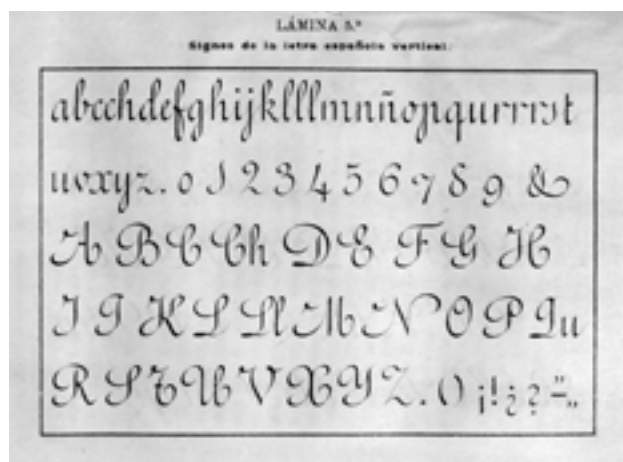 LÁMINA 5.ª
Signos de la letra española vertical.
abcchdefghijklllmnñopqurrrst
uvxyz. 0 1 2 3 4 5 6 7 8 9 &
A B C Ch D E F G H
I J K L Ll M N O P Qu
R S T U V X Y Z. () ¡! ¿?